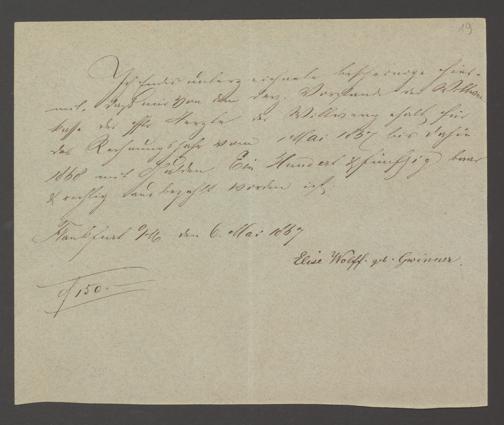 19
Ich Endes unterzeichnete bescheinige hier-
mit, daß mir von dem der. Vorstande der Wittwen
Kasse der Herren Aerzte der Wittwengehalt für
das Rechnungsjahr vom 1 Mai 1867 bis dahin
1868 mit Gulden Ein Hundert & fünfzig baar
& richtig ausbezahlt worden ist.
Frankfurt a/M den 6. Mai 1867
Elise Wolff. geb. Gwinner.
f 150.-